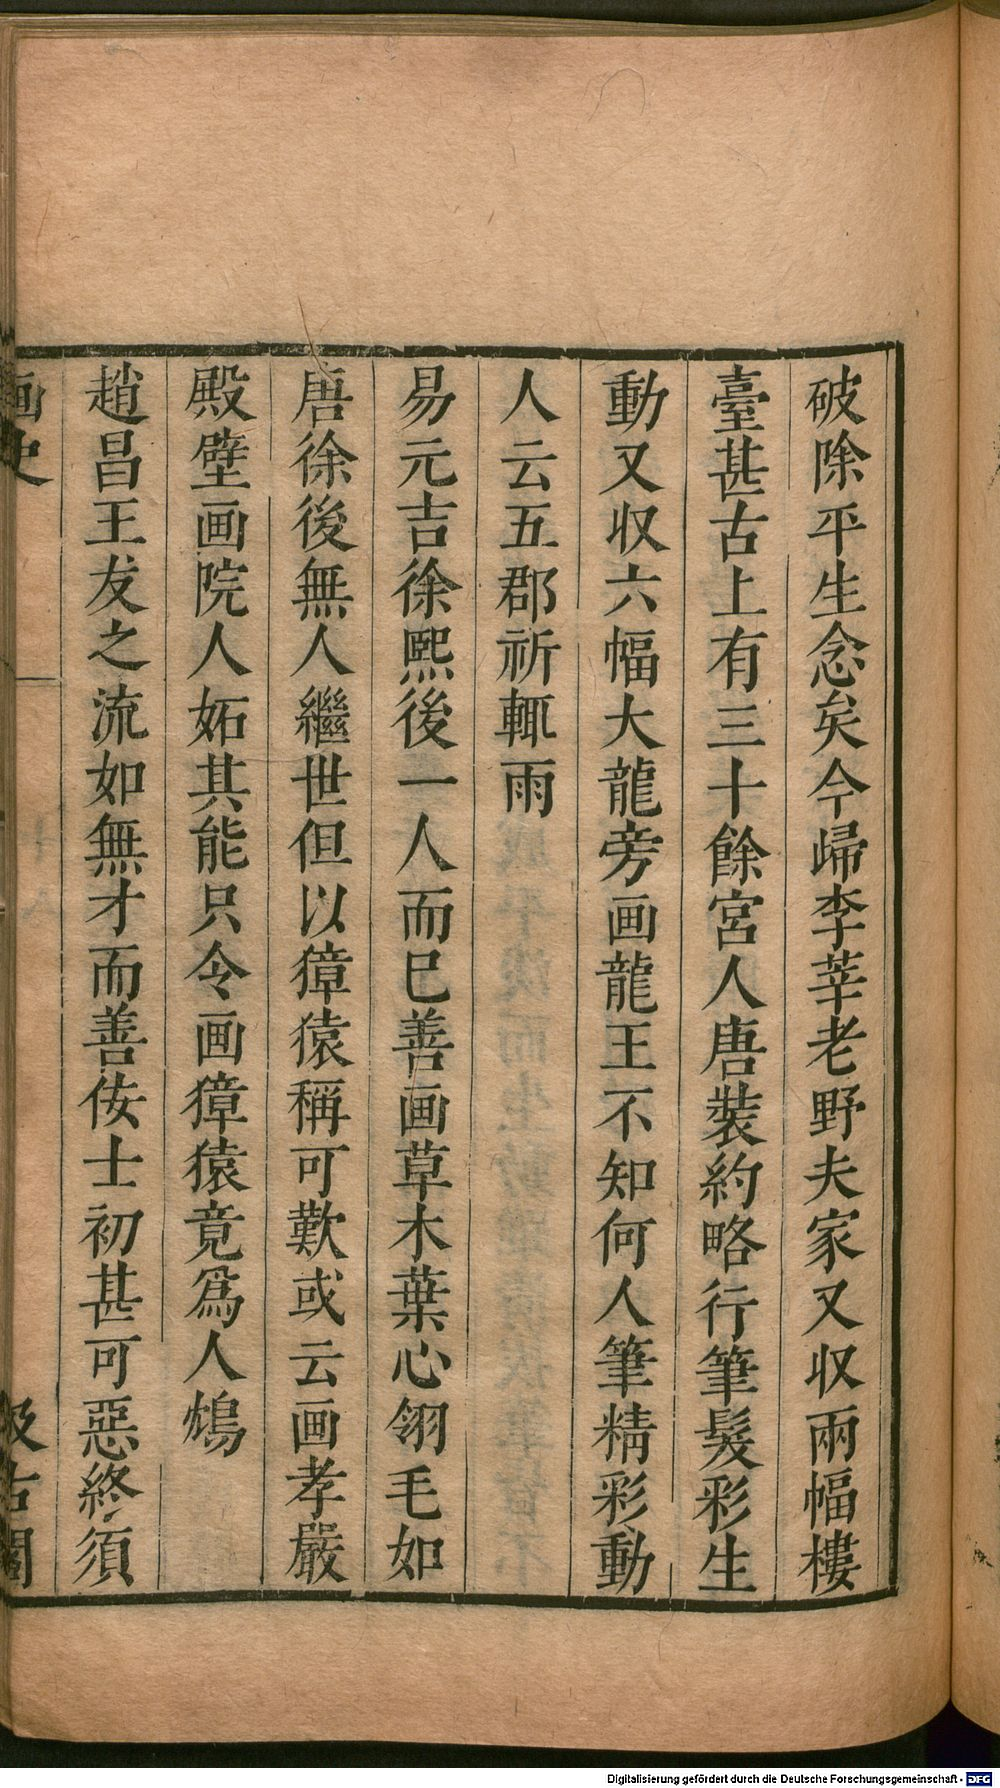 破除平生念矣今歸李莘老野夫家又収兩幅樓
臺甚古上有三十餘宮人唐裝約略行筆髮彩生
動又収六幅大龍旁画龍王不知何人筆精彩動
人云五郡祈輒雨
易元吉徐熙後一人而已善画草木葉心翎毛如
唐徐後無人繼世但以獐猿稱可歎或云画孝嚴
殿壁画院人妬其能只令画獐猿竟爲人鴆
趙昌王友之流如無才而善佞士初甚可惡終須
画史
汲古閣
Digitalisierung gefördert durch die Deutsche Forschungsgemeinschaft - DFG